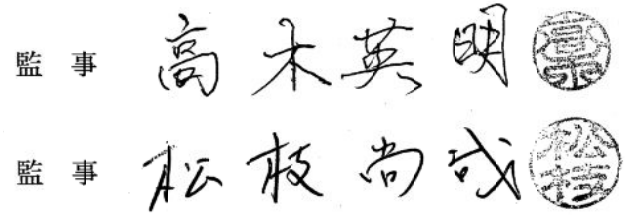 監事 高木英明 高木
監事 松枝尚哉 松枝